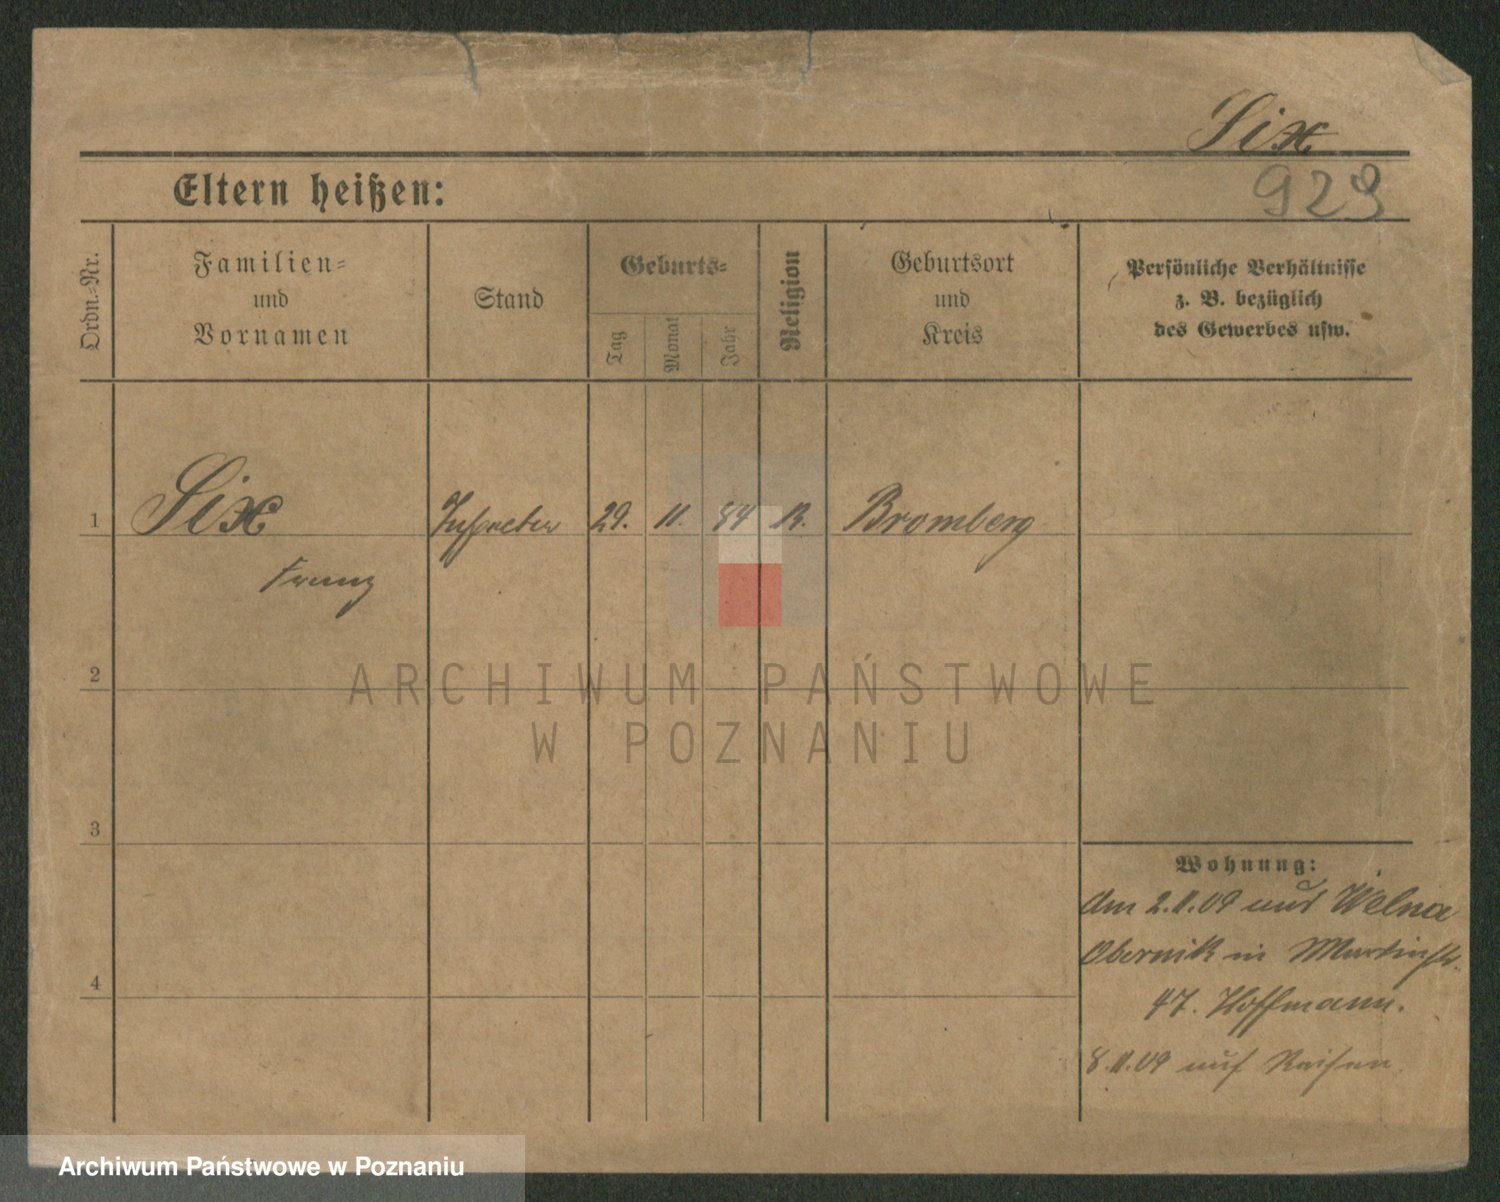 Six
Eltern heißen:
929
Ordn.-Nr.
Familien-
und
Vornamen
Stand
Geburts-
Tag
Monat
Jahr
Religion
Geburtsort
und
Kreis
Persönliche Verhältnisse
z. B. bezüglich
des Gewerbes usw.
1
Six
Inspector
29.
11.
84
R.
Bromberg
Franz
2
ARCHIWUM PAŃSTWOWE
W POZNANIU
3
4
Wohnung:
Am 2.11.09 aus Welna
Obernik in Martinstr.
47. Hoffmann.
8.11.09 auf Reisen.
Archiwum Państwowe w Poznaniu